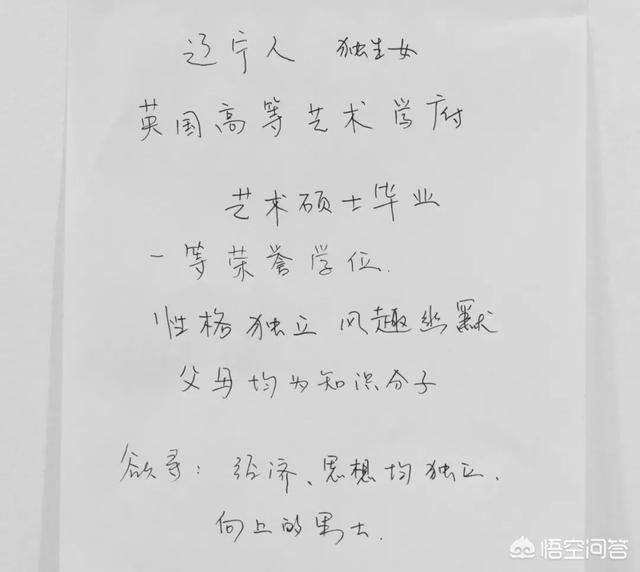 辽宁人 独生女
英国高等艺术学府
艺术硕士毕业
一等荣誉学位.
性格独立 风趣幽默
父母均为知识分子
欲寻：经济、思想均独立.
向上的男士.
悟空问答